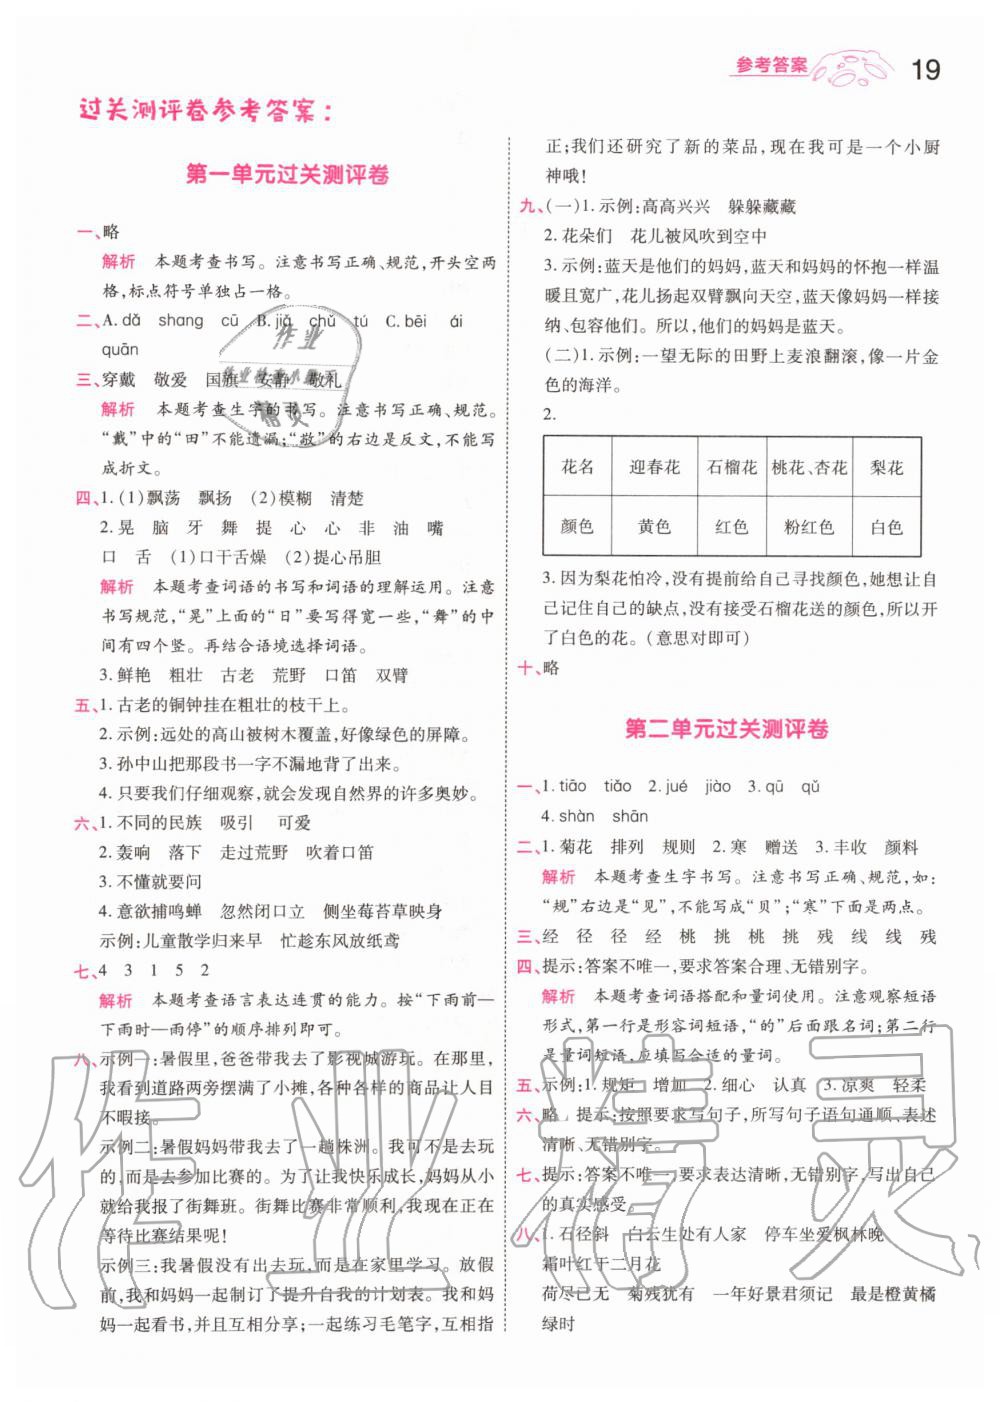 参考答案 19
过关测评卷参考答案：
第一单元过关测评卷
一、略
解析 本题考查书写。注意书写正确、规范,开头空两
格,标点符号单独占一格。
二、A. dǎ shang cū B. jiǎ chǔ tú C. bēi ái
quān
三、穿戴 敬爱 国旗 安静 敬礼
解析 本题考查生字的书写。注意书写正确、规范。
“戴”中的“田”不能遗漏;“敬”的右边是反文,不能写
成折文。
四、1. (1)飘荡 飘扬 (2)模糊 清楚
2. 晃 脑 牙 舞 提 心 心 非 油 嘴
口 舌 (1)口干舌燥 (2)提心吊胆
解析 本题考查词语的书写和词语的理解运用。注意
书写规范,“晃”上面的“日”要写得宽一些,“舞”的中间
有四个竖。再结合语境选择词语。
3. 鲜艳 粗壮 古老 荒野 口笛 双臂
五、1. 古老的铜钟挂在粗壮的枝干上。
2. 示例:远处的高山被树木覆盖,好像绿色的屏障。
3. 孙中山把那段书一字不漏地背了出来。
4. 只要我们仔细观察,就会发现自然界的许多奥妙。
六、1. 不同的民族 吸引 可爱
2. 轰响 落下 走过荒野 吹着口笛
3. 不懂就要问
4. 意欲捕鸣蝉 忽然闭口立 侧坐莓苔草映身
示例:儿童散学归来早 忙趁东风放纸鸢
七、4 3 1 5 2
解析 本题考查语言表达连贯的能力。按“下雨前—
下雨时—雨停”的顺序排列即可。
八、示例一:暑假里,爸爸带我去了影视城游玩。在那里,
我看到道路两旁摆满了小摊,各种各样的商品让人目
不暇接。
示例二:暑假妈妈带我去了一趟株洲。我可不是去玩
的,而是去参加比赛的。为了让我快乐成长,妈妈从小
就给我报了街舞班。街舞比赛非常顺利,我现在正在
等待比赛结果呢!
示例三:我暑假没有出去玩,而是在家里学习。放假
前,我和妈妈一起制订了提升自我的计划表。我和妈
妈一起看书,并且互相分享;一起练习毛笔字,互相指
正;我们还研究了新的菜品,现在我可是一个小厨
神哦!
九、(一)1. 示例:高高兴兴 躲躲藏藏
2. 花朵们 花儿被风吹到空中
3. 示例:蓝天是他们的妈妈,蓝天和妈妈的怀抱一样温
暖且宽广,花儿扬起双臂飘向天空,蓝天像妈妈一样接
纳、包容他们。所以,他们的妈妈是蓝天。
(二)1. 示例:一望无际的田野上麦浪翻滚,像一片金
色的海洋。
2.
花名 迎春花 石榴花 桃花、杏花 梨花
颜色 黄色 红色 粉红色 白色
3. 因为梨花怕冷,没有提前给自己寻找颜色,她想让自
己记住自己的缺点,没有接受石榴花送的颜色,所以开
了白色的花。(意思对即可)
十、略
第二单元过关测评卷
一、1. tiāo tiǎo 2. jué jiào 3. qū qǔ
4. shàn shān
二、1. 菊花 排列 规则 2. 寒 赠送 3. 丰收 颜料
解析 本题考查生字书写。注意书写正确、规范,如:
“规”右边是“见”,不能写成“贝”;“寒”下面是两点。
三、经 径 径 经 桃 挑 桃 挑 残 线 线 残
四、提示:答案不唯一,要求答案合理、无错别字。
解析 本题考查词语搭配和量词使用。注意观察短语
形式,第一行是形容词短语,“的”后面跟名词;第二行
是量词短语,应填写合适的量词。
五、示例:1. 规矩 增加 2. 细心 认真 3. 凉爽 轻柔
六、略 提示:按照要求写句子,所写句子语句通顺、表述
清晰、无错别字。
七、提示:答案不唯一,要求表达清晰,无错别字,写出自己
的真实感受。
八、1. 石径斜 白云生处有人家 停车坐爱枫林晚
霜叶红于二月花
荷尽已无 菊残犹有 一年好景君须记 最是橙黄橘
绿时
作业
作业检查小帮手
精灵
作业精灵